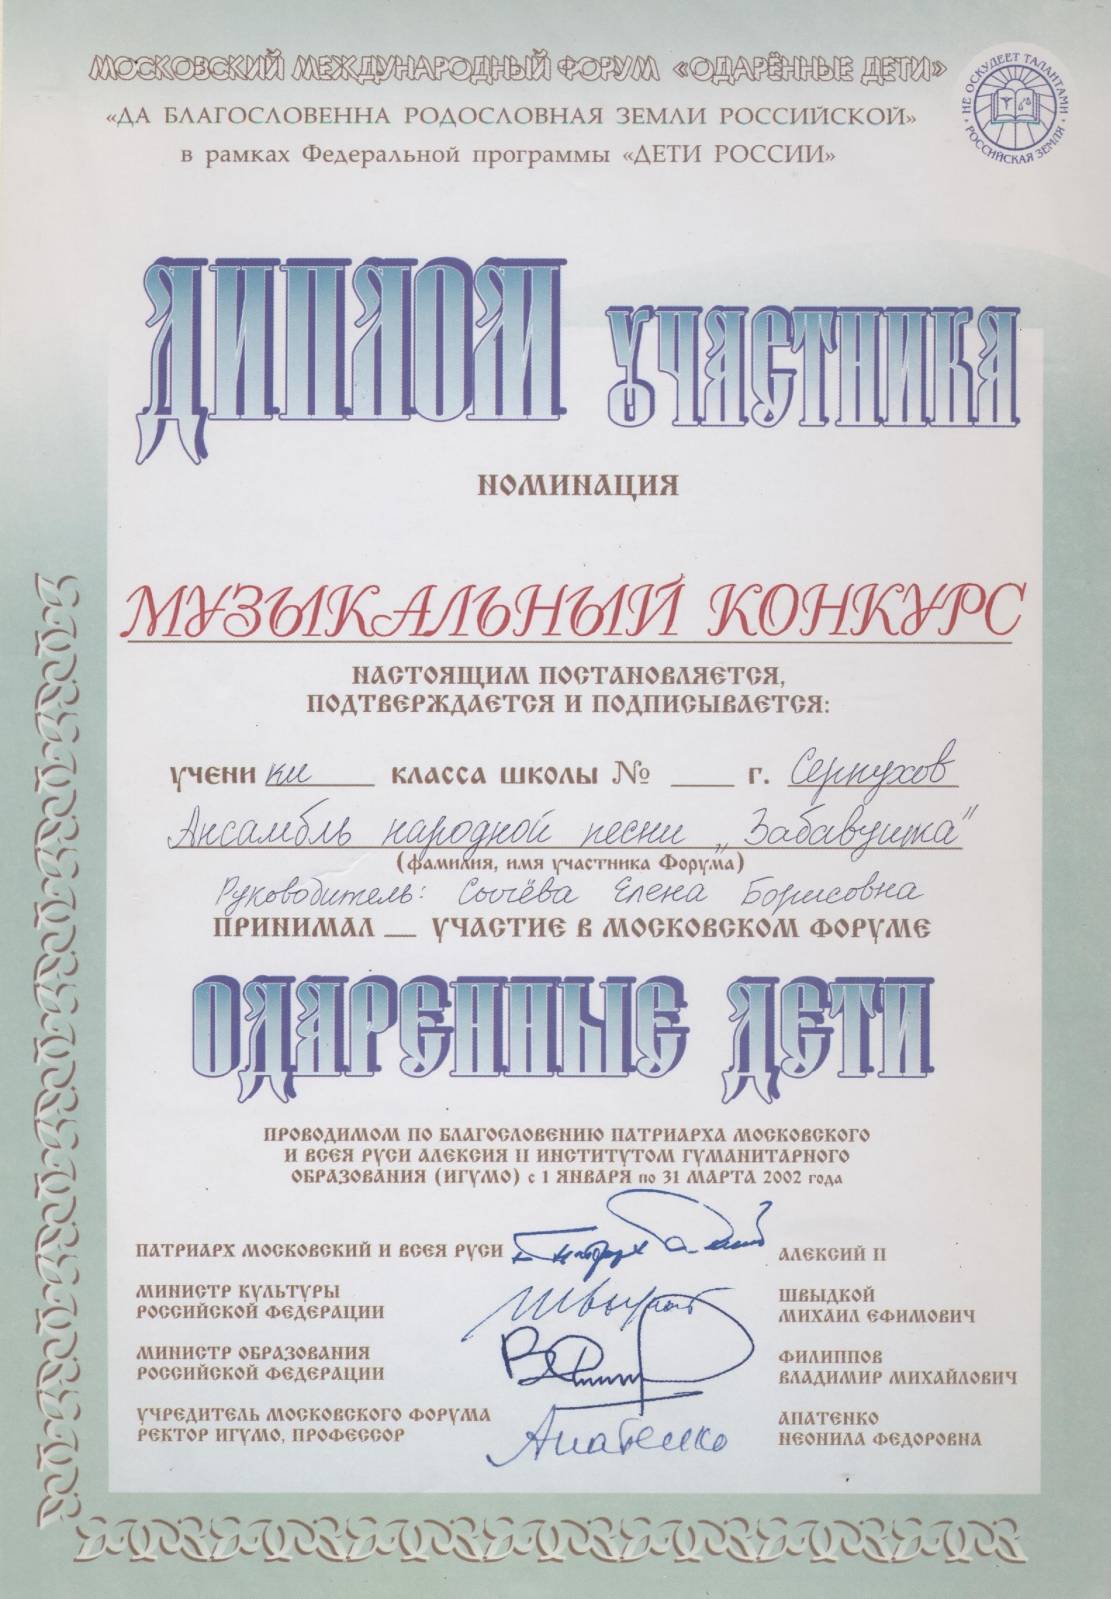 МОСКОВСКИЙ МЕЖДУНАРОДНЫЙ ФОРУМ «ОДАРЁННЫЕ ДЕТИ»
«ДА БЛАГОСЛОВЕННА РОДОСЛОВНАЯ ЗЕМЛИ РОССИЙСКОЙ»
в рамках Федеральной программы «ДЕТИ РОССИИ»
НЕ ОСКУДЕЕТ ТАЛАНТАМИ
РОССИЙСКАЯ ЗЕМЛЯ
ДИПЛОМ УЧАСТНИКА
НОМИНАЦИЯ
МУЗЫКАЛЬНЫЙ КОНКУРС
НАСТОЯЩИМ ПОСТАНОВЛЯЕТСЯ,
ПОДТВЕРЖДАЕТСЯ И ПОДПИСЫВАЕТСЯ:
УЧЕНИ ки ____ КЛАССА ШКОЛЫ № ____ Г. Серпухов
Ансамбль народной песни „Забавушка"
(фамилия, имя участника Форума)
Руководитель: Сычёва Елена Борисовна
ПРИНИМАЛ __ УЧАСТИЕ В МОСКОВСКОМ ФОРУМЕ
ОДАРЕННЫЕ ДЕТИ
ПРОВОДИМОМ ПО БЛАГОСЛОВЕНИЮ ПАТРИАРХА МОСКОВСКОГО
И ВСЕЯ РУСИ АЛЕКСИЯ II ИНСТИТУТОМ ГУМАНИТАРНОГО
ОБРАЗОВАНИЯ (ИГУМО) с 1 ЯНВАРЯ по 31 МАРТА 2002 года
ПАТРИАРХ МОСКОВСКИЙ И ВСЕЯ РУСИ АЛЕКСИЙ II
МИНИСТР КУЛЬТУРЫ ШВЫДКОЙ
РОССИЙСКОЙ ФЕДЕРАЦИИ МИХАИЛ ЕФИМОВИЧ
МИНИСТР ОБРАЗОВАНИЯ ФИЛИППОВ
РОССИЙСКОЙ ФЕДЕРАЦИИ ВЛАДИМИР МИХАЙЛОВИЧ
УЧРЕДИТЕЛЬ МОСКОВСКОГО ФОРУМА АПАТЕНКО
РЕКТОР ИГУМО, ПРОФЕССОР Апатенко НЕОНИЛА ФЕДОРОВНА